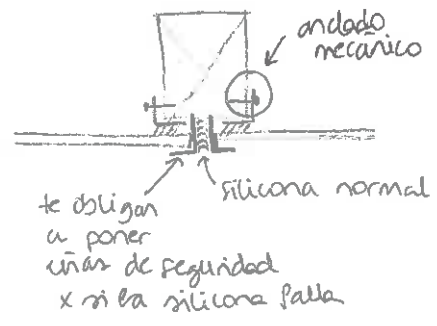 anclado
mecánico
silicona normal
te obligan
a poner
uñas de seguridad
x si la silicona falla